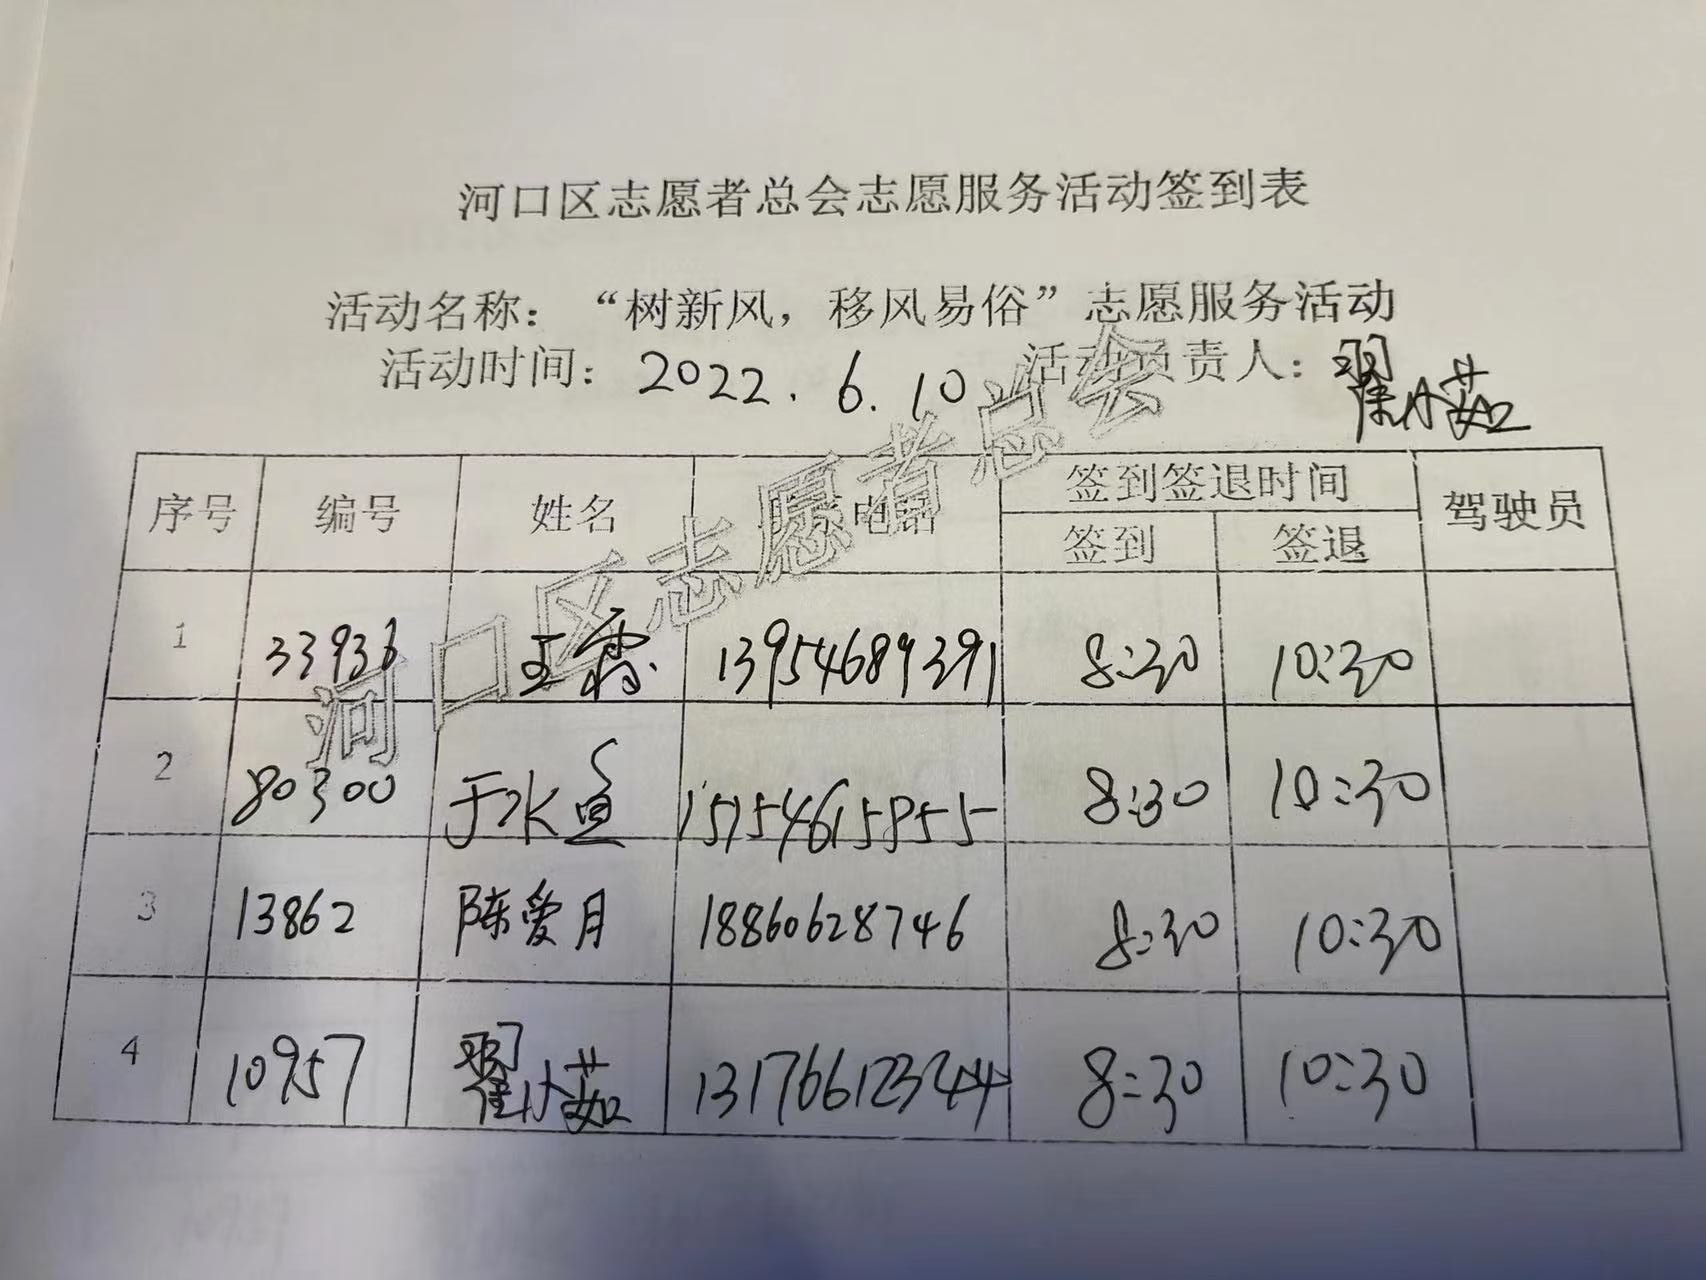 河口区志愿者总会志愿服务活动签到表
活动名称：“树新风，移风易俗”志愿服务活动
活动时间：2022.6.10 活动负责人：翟小茹
序号 编号 姓名 电话 签到签退时间 驾驶员
签到 签退
1 33936 王霞 13954689391 8:30 10:30
2 80300 于水 8:30 10:30
3 13862 陈爱月 18860628746 8:30 10:30
4 10957 翟小茹 13176612344 8:30 10:30
河口区志愿者总会